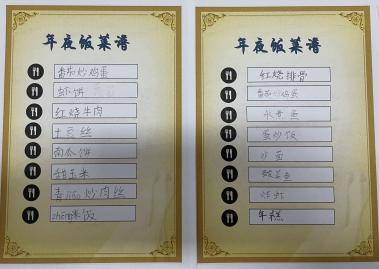 年夜饭菜谱
番茄炒鸡蛋
虾饼
红烧牛肉
土豆丝
南瓜饼
甜玉米
青jiāo炒肉丝
zhēng米饭
年夜饭菜谱
红烧排骨
番茄炒鸡蛋
水煮鱼
蛋炒饭
酸菜鱼
炸虾
年糕